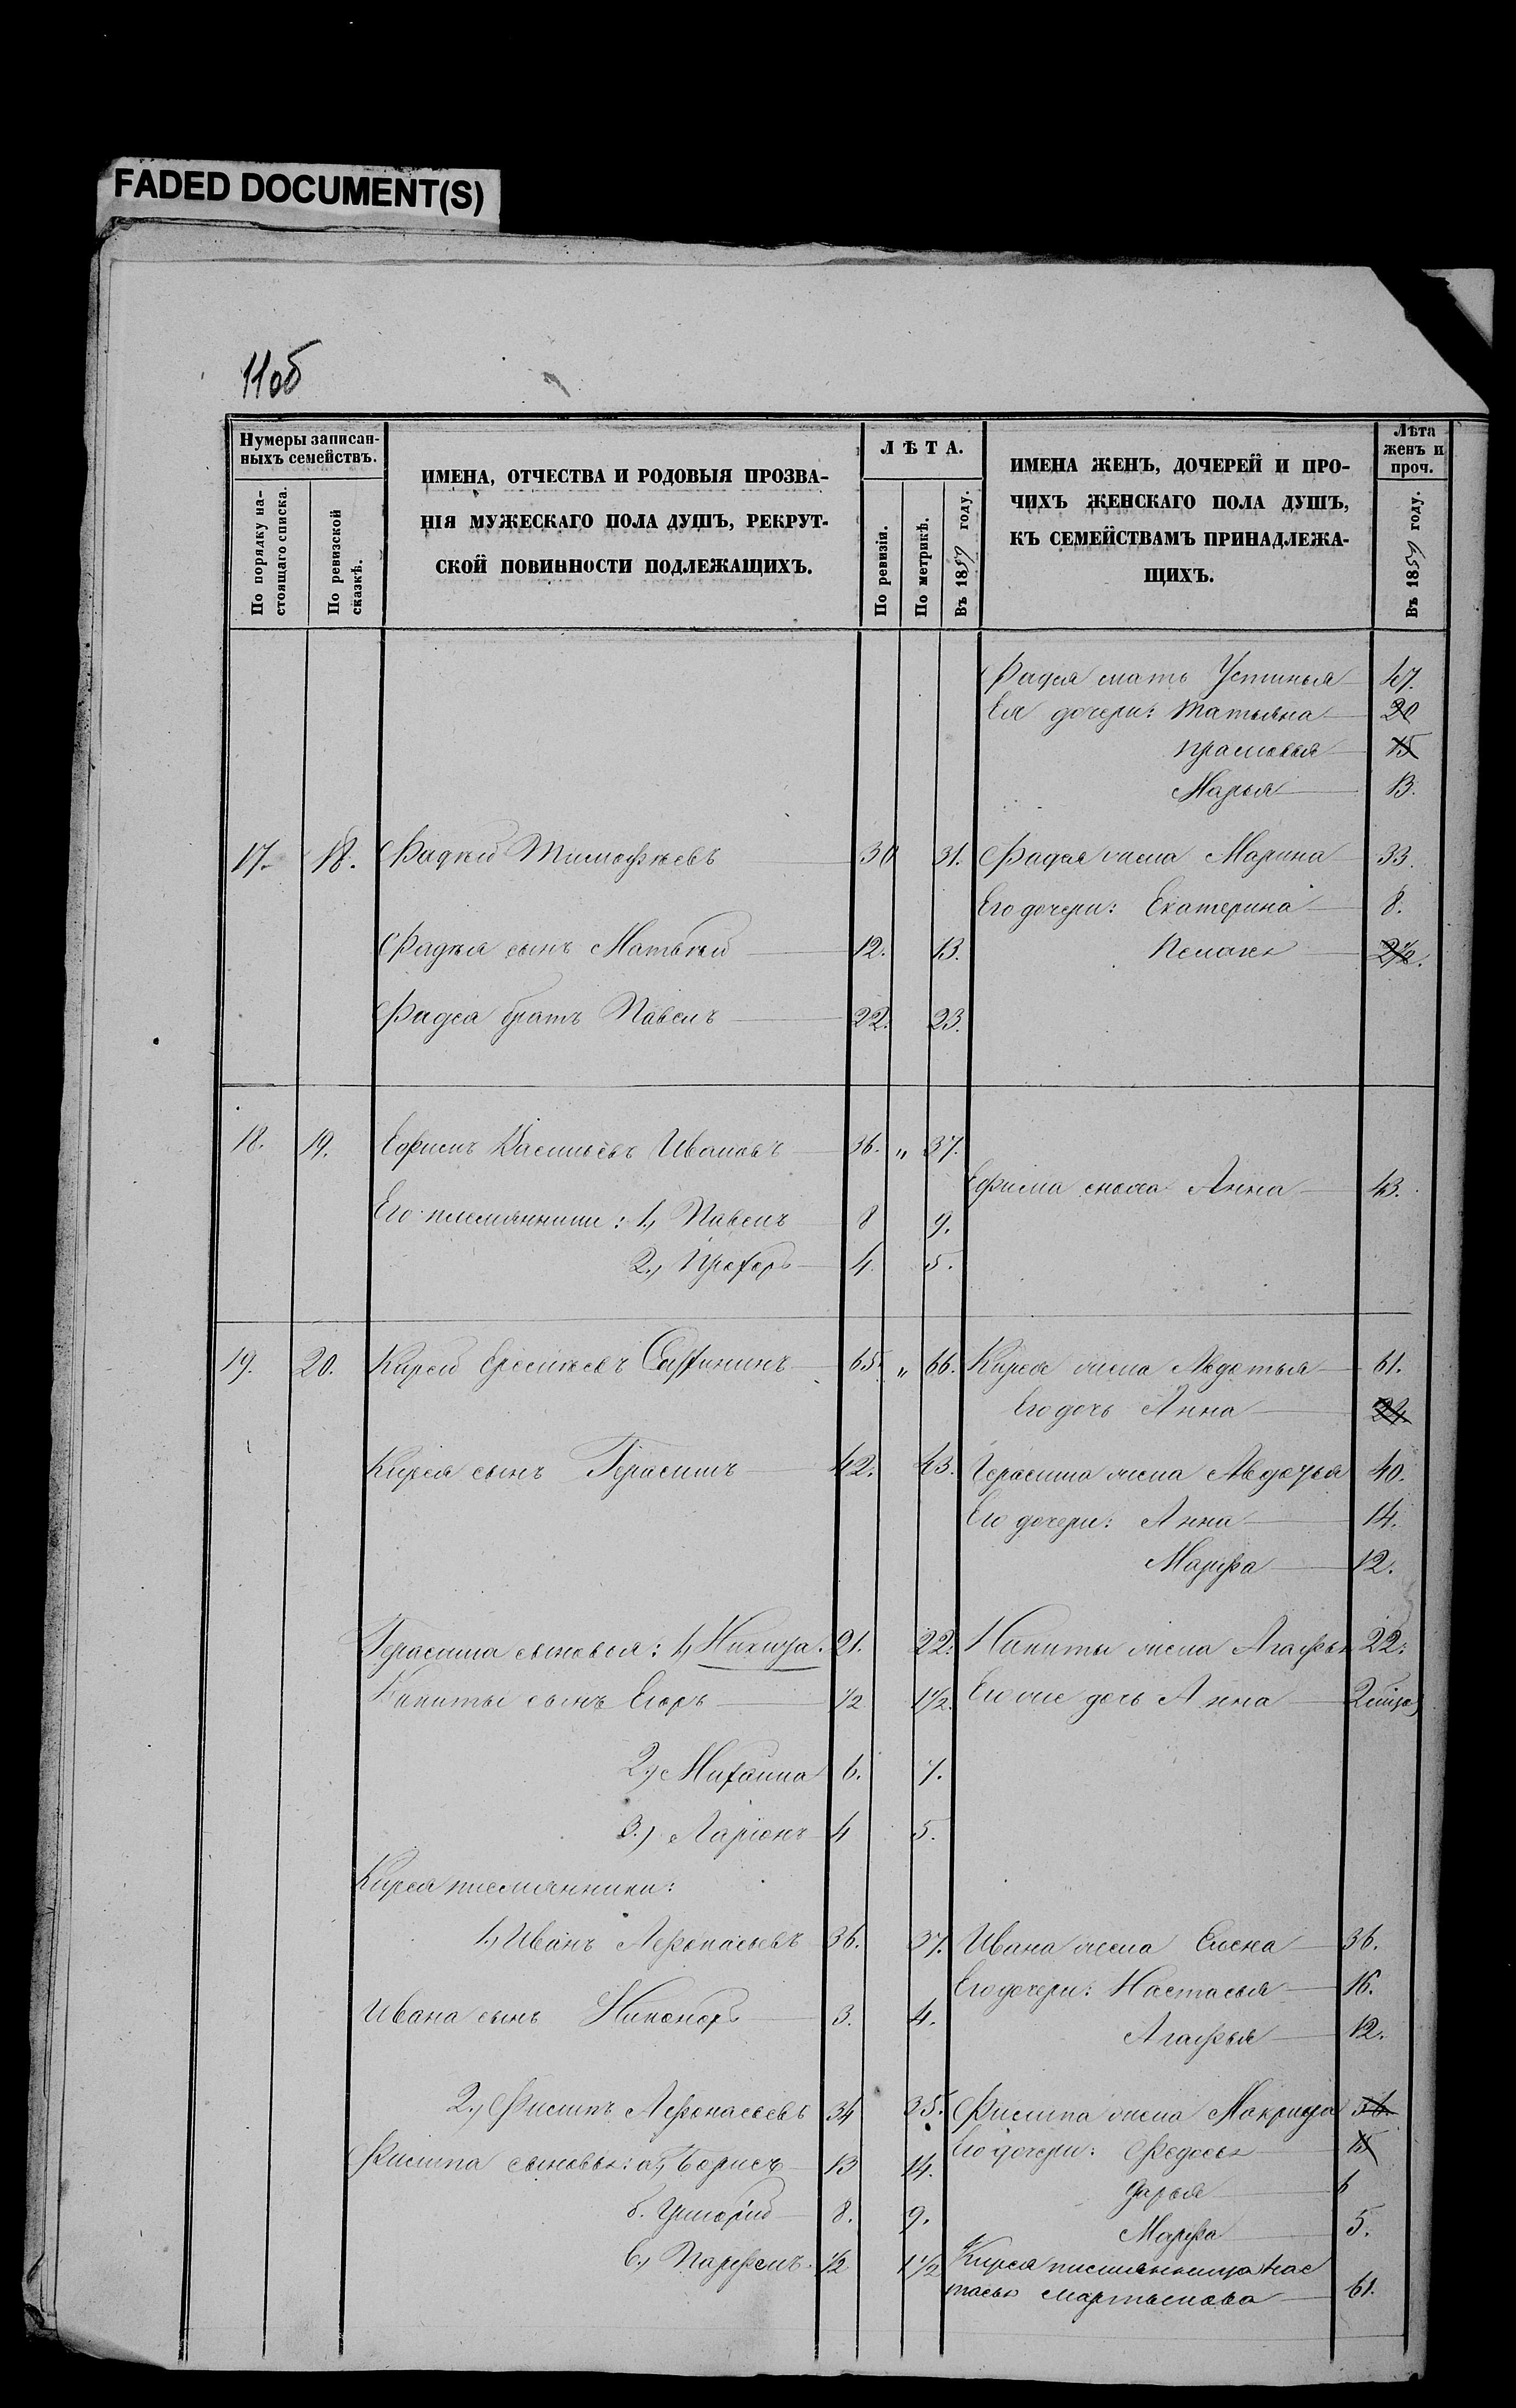 FADED DOCUMENT(S)
11об
Нумеры записан-
ныхъ семействъ.
По порядку на-
стоящаго списка.
По ревизской
сказкѣ.
ИМЕНА, ОТЧЕСТВА И РОДОВЫЯ ПРОЗВА-
НІЯ МУЖЕСКАГО ПОЛА ДУШЪ, РЕКРУТ-
СКОЙ ПОВИННОСТИ ПОДЛЕЖАЩИХЪ.
ЛѢТА.
По ревизіи.
По метрикѣ.
Въ 1859 году.
ИМЕНА ЖЕНЪ, ДОЧЕРЕЙ И ПРО-
ЧИХЪ ЖЕНСКАГО ПОЛА ДУШЪ,
КЪ СЕМЕЙСТВАМЪ ПРИНАДЛЕЖА-
ЩИХЪ.
Лѣта
женъ и
проч.
Въ 1859 году.
Фадея мать Устинья 47.
Ея дочери: Татьяна 20
Прасковья 15
Марья 13.
17. 18. Фадѣй Тимофѣевъ 30 31. Фадея жена Марина 33.
Его дочери: Екатерина 8.
Фадѣя сынъ Матвѣй 12. 13. Пелагея 2½.
Фадея братъ Павелъ 22. 23.
18. 19. Ефимъ Васильевъ Ивановъ 36. „ 37.
Ефима сноха Анна 43.
Его племянники: 1, Павелъ 8 9.
2, Прохоръ 4. 5.
19. 20. Кирей 65. „ 66. Кирея жена Авдотья 61.
Его дочь Анна 24.
Кирея сынъ Герасимъ 42. 43. Герасима жена Авдотья 40.
Его дочери: Анна 14.
Марфа 12.
Герасима сыновья: 1, Никита. 21. 22. Никиты жена Агафья 22.
Никиты сынъ Егоръ ½ 1½. Его же дочь Анна
2, Михаила 6. 7.
3, Ларіонъ 4 5.
Кирея племянники:
1, Иванъ Афонасьевъ 36. 37. Ивана жена Елена 36.
Его дочери: Настасья 16.
Ивана сынъ Никоноръ 3. 4.
Агафья 12.
2, Филипъ Афонасьевъ 34 35. Филипа жена Макрида 36.
Его дочери: Федосья 15
Филипа сыновья: а, Борисъ 13 14.
Дарья 6
б. Григорій 8. 9.
Марфа 5.
в, Парфенъ ½ 1½ Кирея племянница Нас
тасья Мартынова 61.